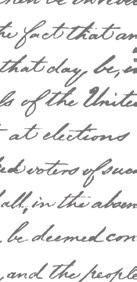 the fact that an
that day, be, in
s of the United
at elections
voters of such
all, in the absen
be deemed con
, and the people